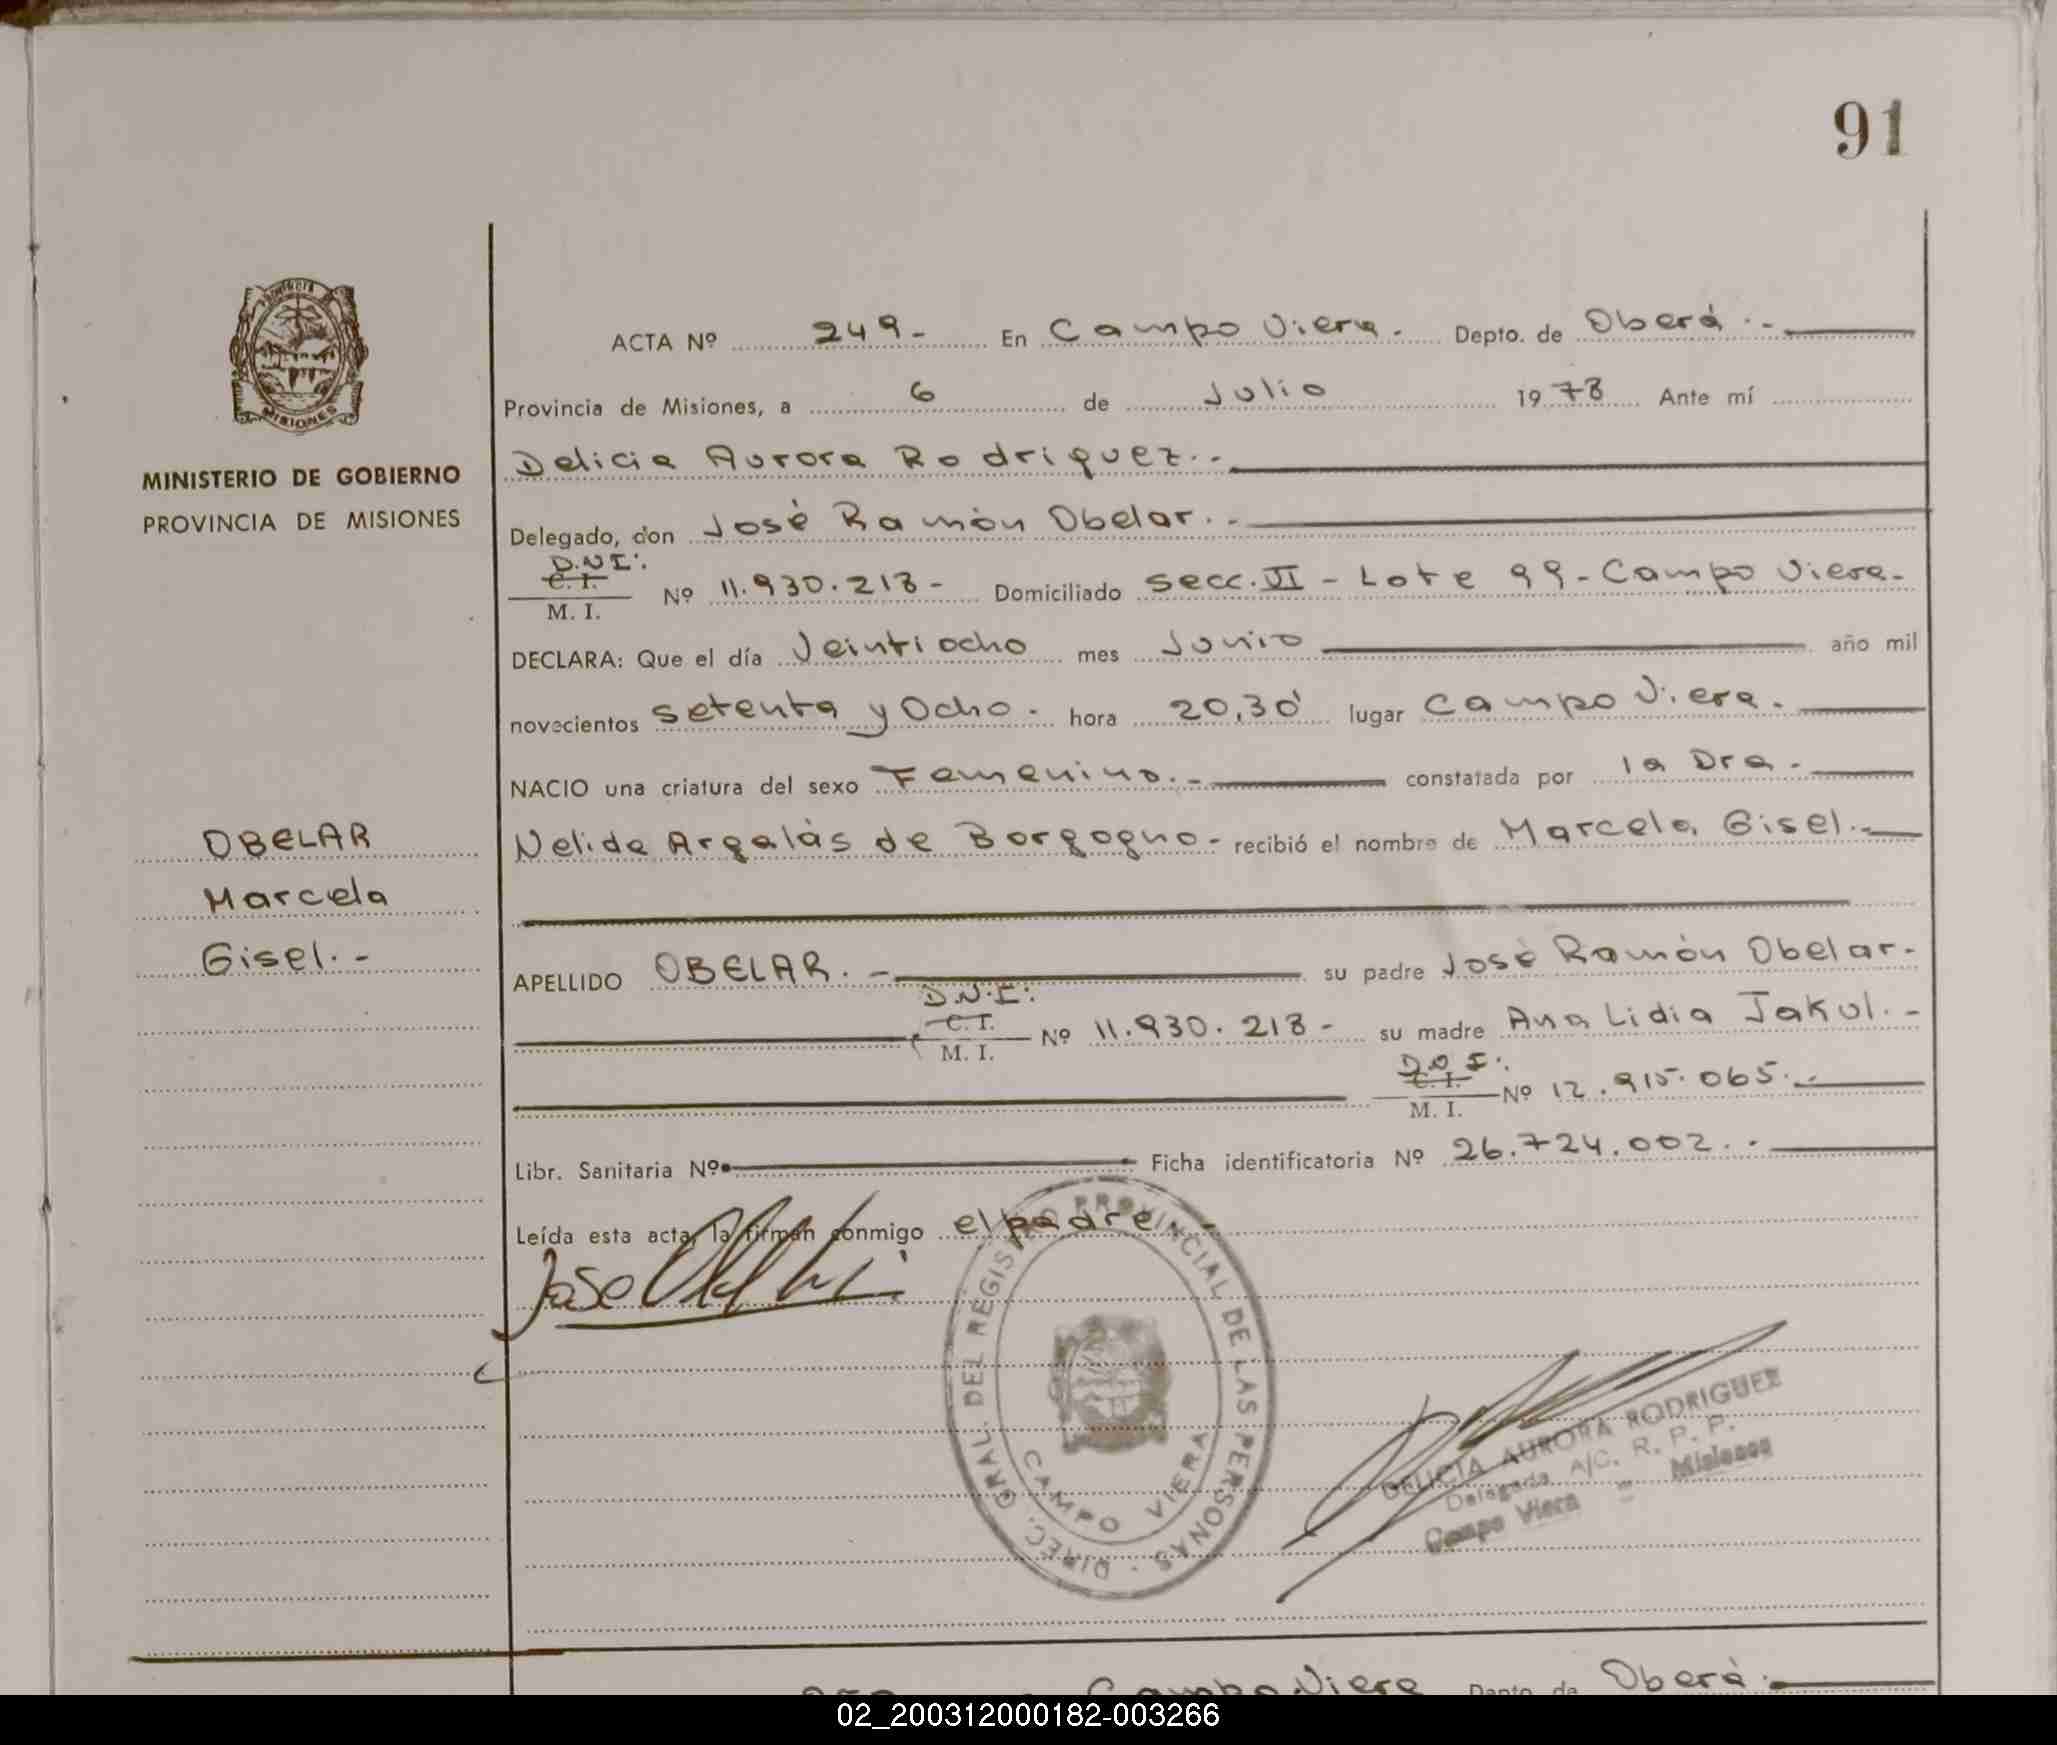 91
PROVINCIA DE
MISIONES
MINISTERIO DE GOBIERNO
PROVINCIA DE MISIONES
OBELAR
Marcela
Gisel.-
ACTA Nº 249- En Campo Viera. Depto. de Oberá.-
Provincia de Misiones, a 6 de Julio 1978 Ante mí
Delicia Aurora Rodriguez.-
Delegado, don José Ramón Obelar.-
D.N.I:
C. I.
M. I. Nº 11.930.218- Domiciliado secc. VI - Lote 99 - Campo Viera-
DECLARA: Que el día Veintiocho mes Junio año mil
novecientos setenta y Ocho. hora 20,30' lugar Campo Viera.
NACIO una criatura del sexo Femenino.- constatada por la Dra.-
Nelida Argalás de Borgogno- recibió el nombre de Marcela Gisel.-
APELLIDO OBELAR.- su padre José Ramón Obelar-
D.N.I:
C. I.
M. I. Nº 11.930.218- su madre Ana Lidia Jakul.-
C. I.
M. I. Nº 12.915.065.-
Libr. Sanitaria Nº Ficha identificatoria Nº 26.724.002.-
Leída esta acta, la firman conmigo el padre.-
Jose
DIREC. GRAL. DEL REGISTRO PROVINCIAL DE LAS PERSONAS
CAMPO VIERA
DELICIA AURORA RODRIGUEZ
Delegada A/C. R. P. P.
Campo Viera - Misiones
Campo Viera Depto. de Oberá.
02_200312000182-003266